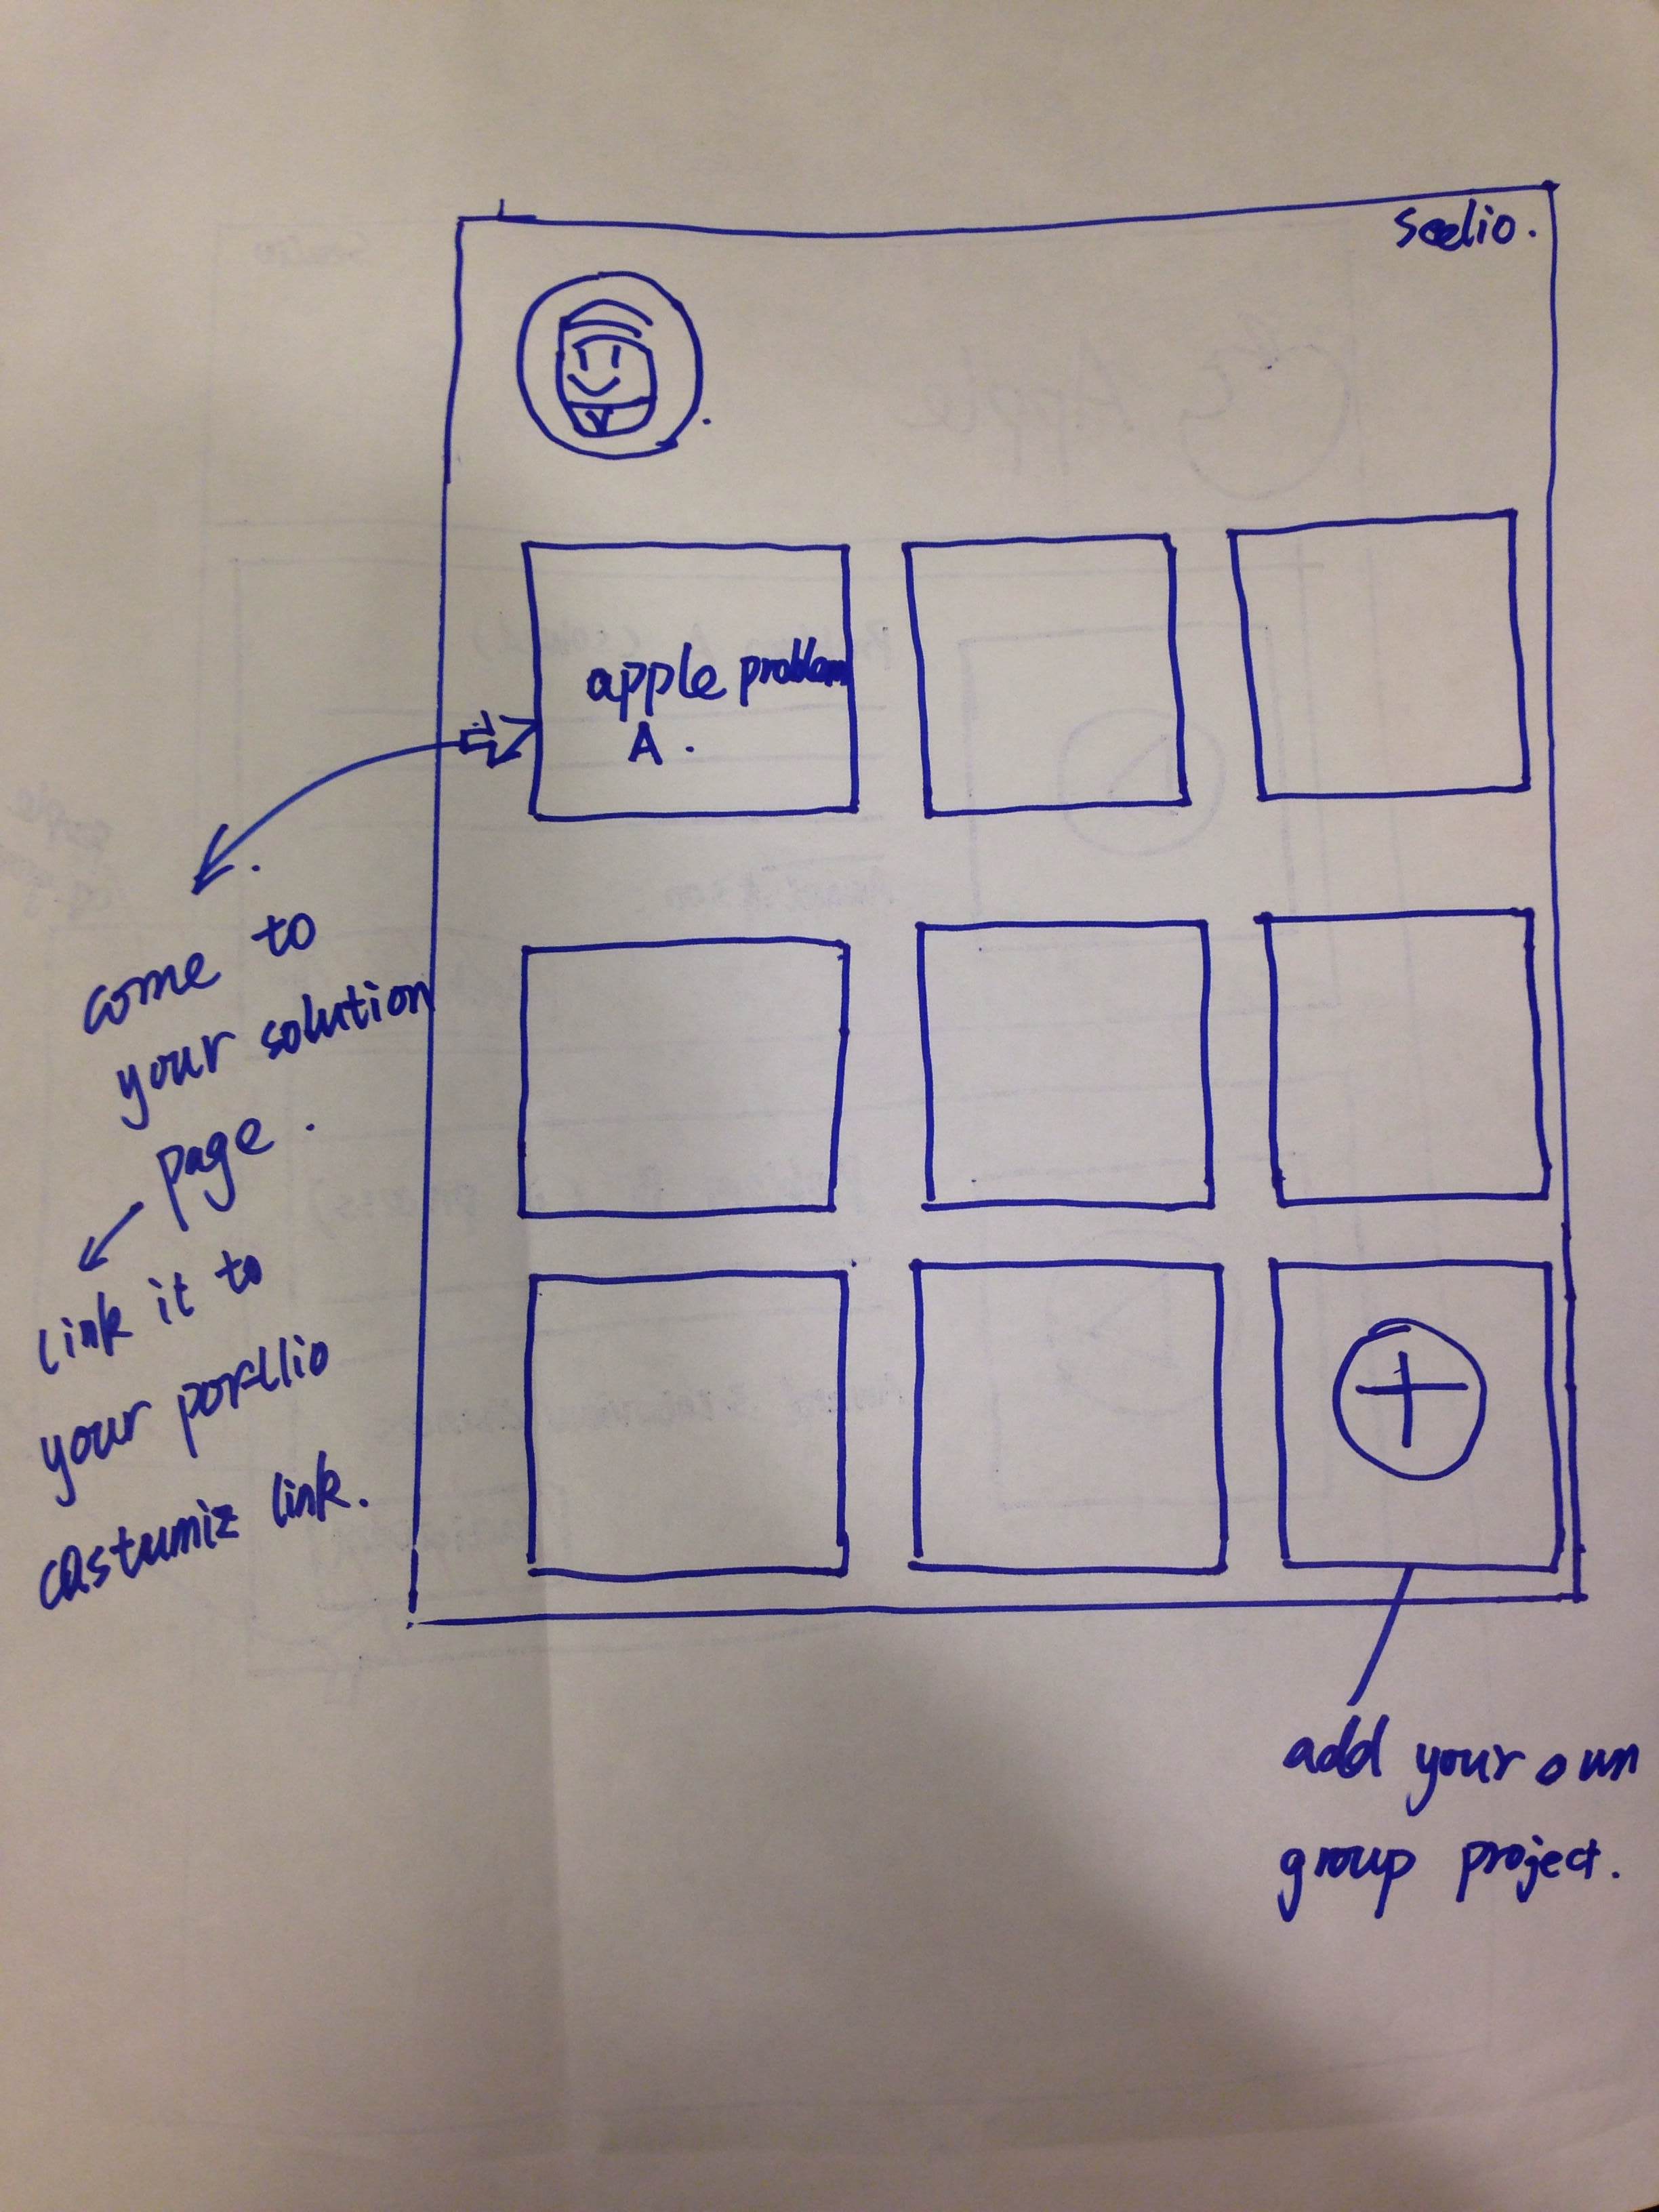 seelio.
apple problem
A.
come to
your solution
page.
link it to
your portlio
costumiz link.
add your own
group project.